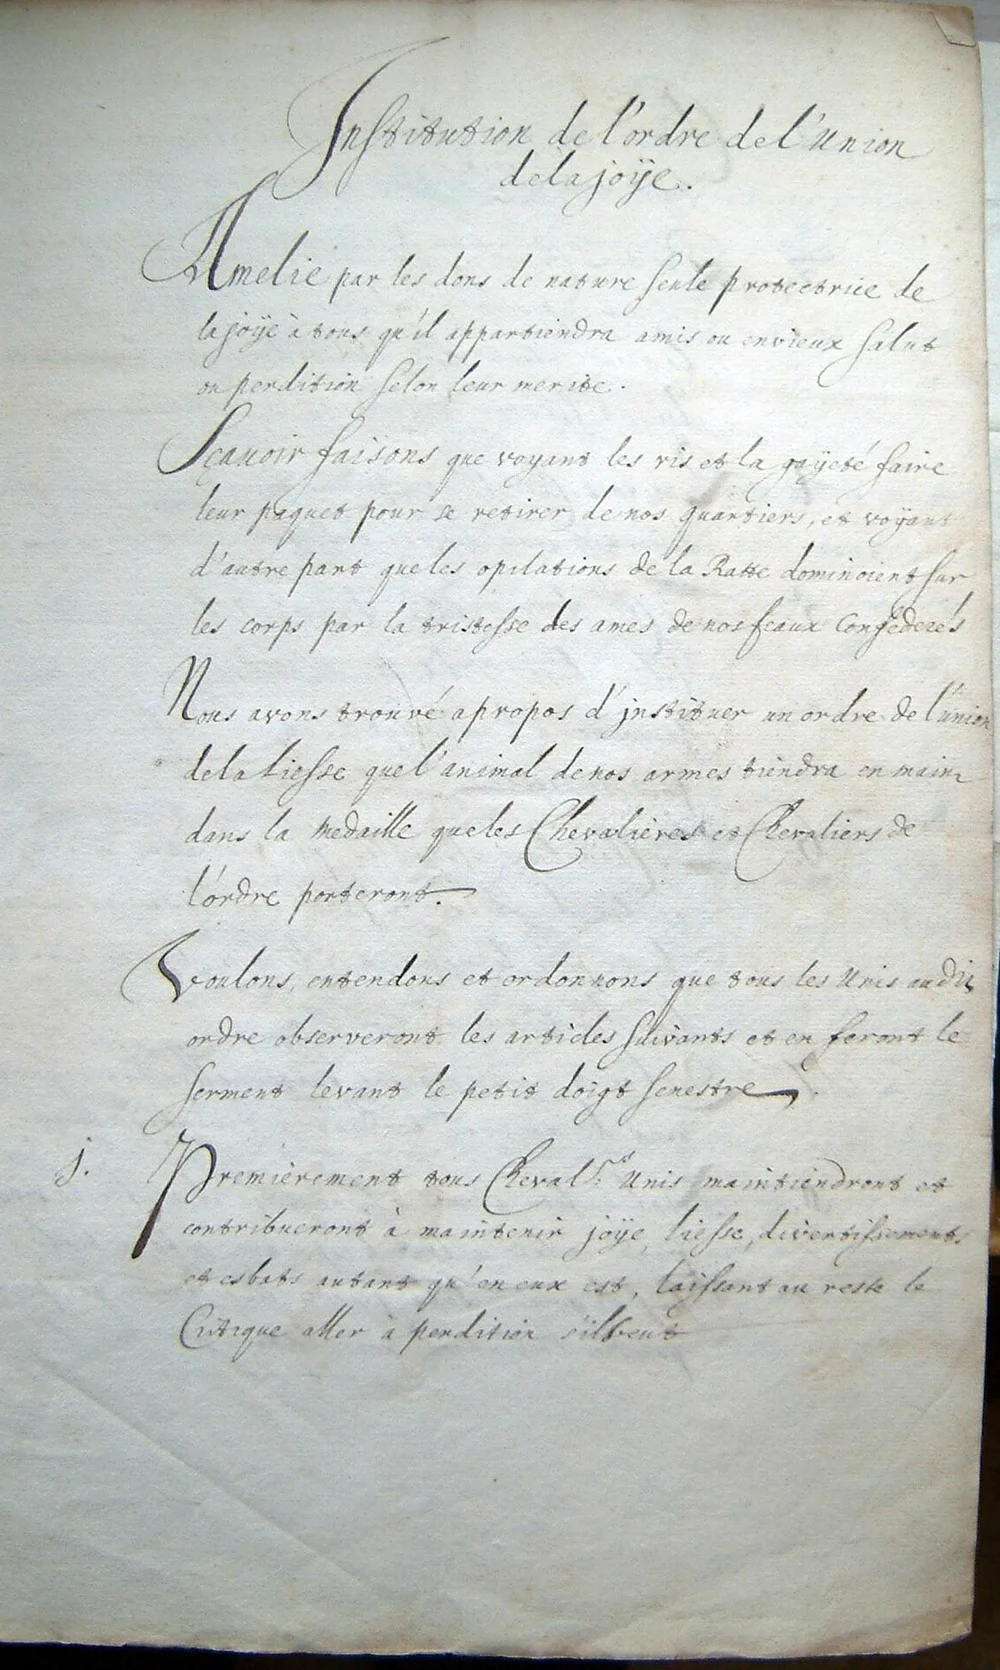 Institution de l'ordre de l'Union
de la joÿe.
Amelie par les dons de nature seule protectrice de
la joÿe à tous qu'il appartiendra amis ou envieux salut
ou perdition selon leur merite.
Sçauoir faisons que voyant les ris et la gaÿeté faire
leur paquet pour se retirer de nos quartiers, et voÿant
d'autre part que les opilations de la Ratte dominoient sur
les corps par la tristesse des ames de nos feaux Confederés
Nous avons trouvé a propos d'jnstituer un ordre de l'union
de la Liesse que l'animal de nos armes tiendra en main
dans la medaille que les Chevalières et Chevaliers de
l'ordre porteront.
Voulons, entendons et ordonnons que tous les Unis au dit
ordre observeront les articles suivants et en feront le
serment levant le petit doigt senestre
j. Premièrement tous Cheval.rs Unis maintiendront et
contribueront à maintenir joÿe, liesse, divertissements
et esbats autant qu'en eux est, laissant au reste le
Critique aller à perdition s'il veut